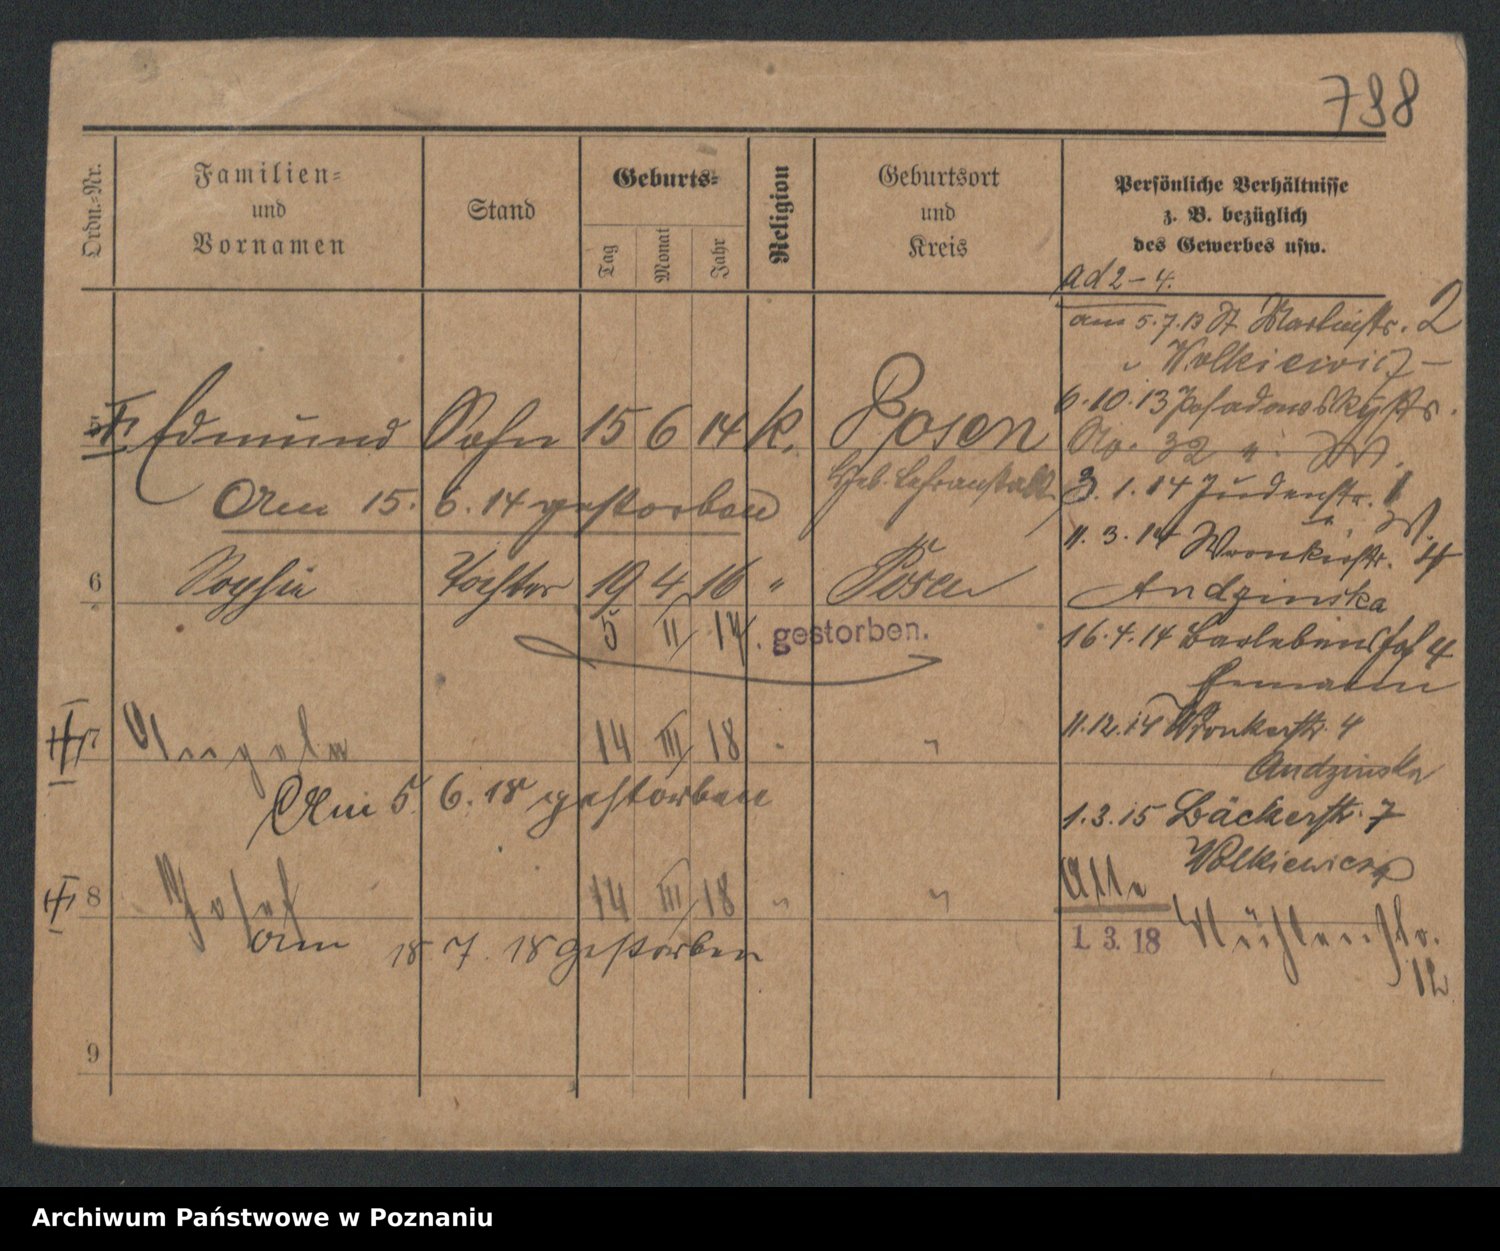 738
Ordn.-Nr.
Familien-
und
Vornamen
Stand
Geburts-
Tag
Monat
Jahr
Religion
Geburtsort
und
Kreis
Persönliche Verhältnisse
z. B. bezüglich
des Gewerbes usw.
5 Edmund Sohn 15 6 14 k. Posen
Geb. Lehranstalt
Am 15. 6. 14 gestorben
6 Sophie Tochter 19 4 16 " Posen
5 II 17. gestorben.
7 Angela 14 III 18 " "
Am 5. 6. 18 gestorben
8 Josef 14 III 18 " "
am 18. 7. 18 gestorben
9
ad 2-4.
am 5.7.13 St Martinstr. 2
" Wolkiewicz
6.10.13 Posadowskystr.
No. 32 "
3.1.14 Judenstr. 1
11.3.14 Wronkerstr. 4
Andzinska
16.4.14 Barlebenshof 4
11.12.14 Wronkerstr. 4
Andzinska
1.3.15 Bäckerstr. 7
Wolkiewicz
Alle
1. 3. 18 Mühlenstr.
12
Archiwum Państwowe w Poznaniu